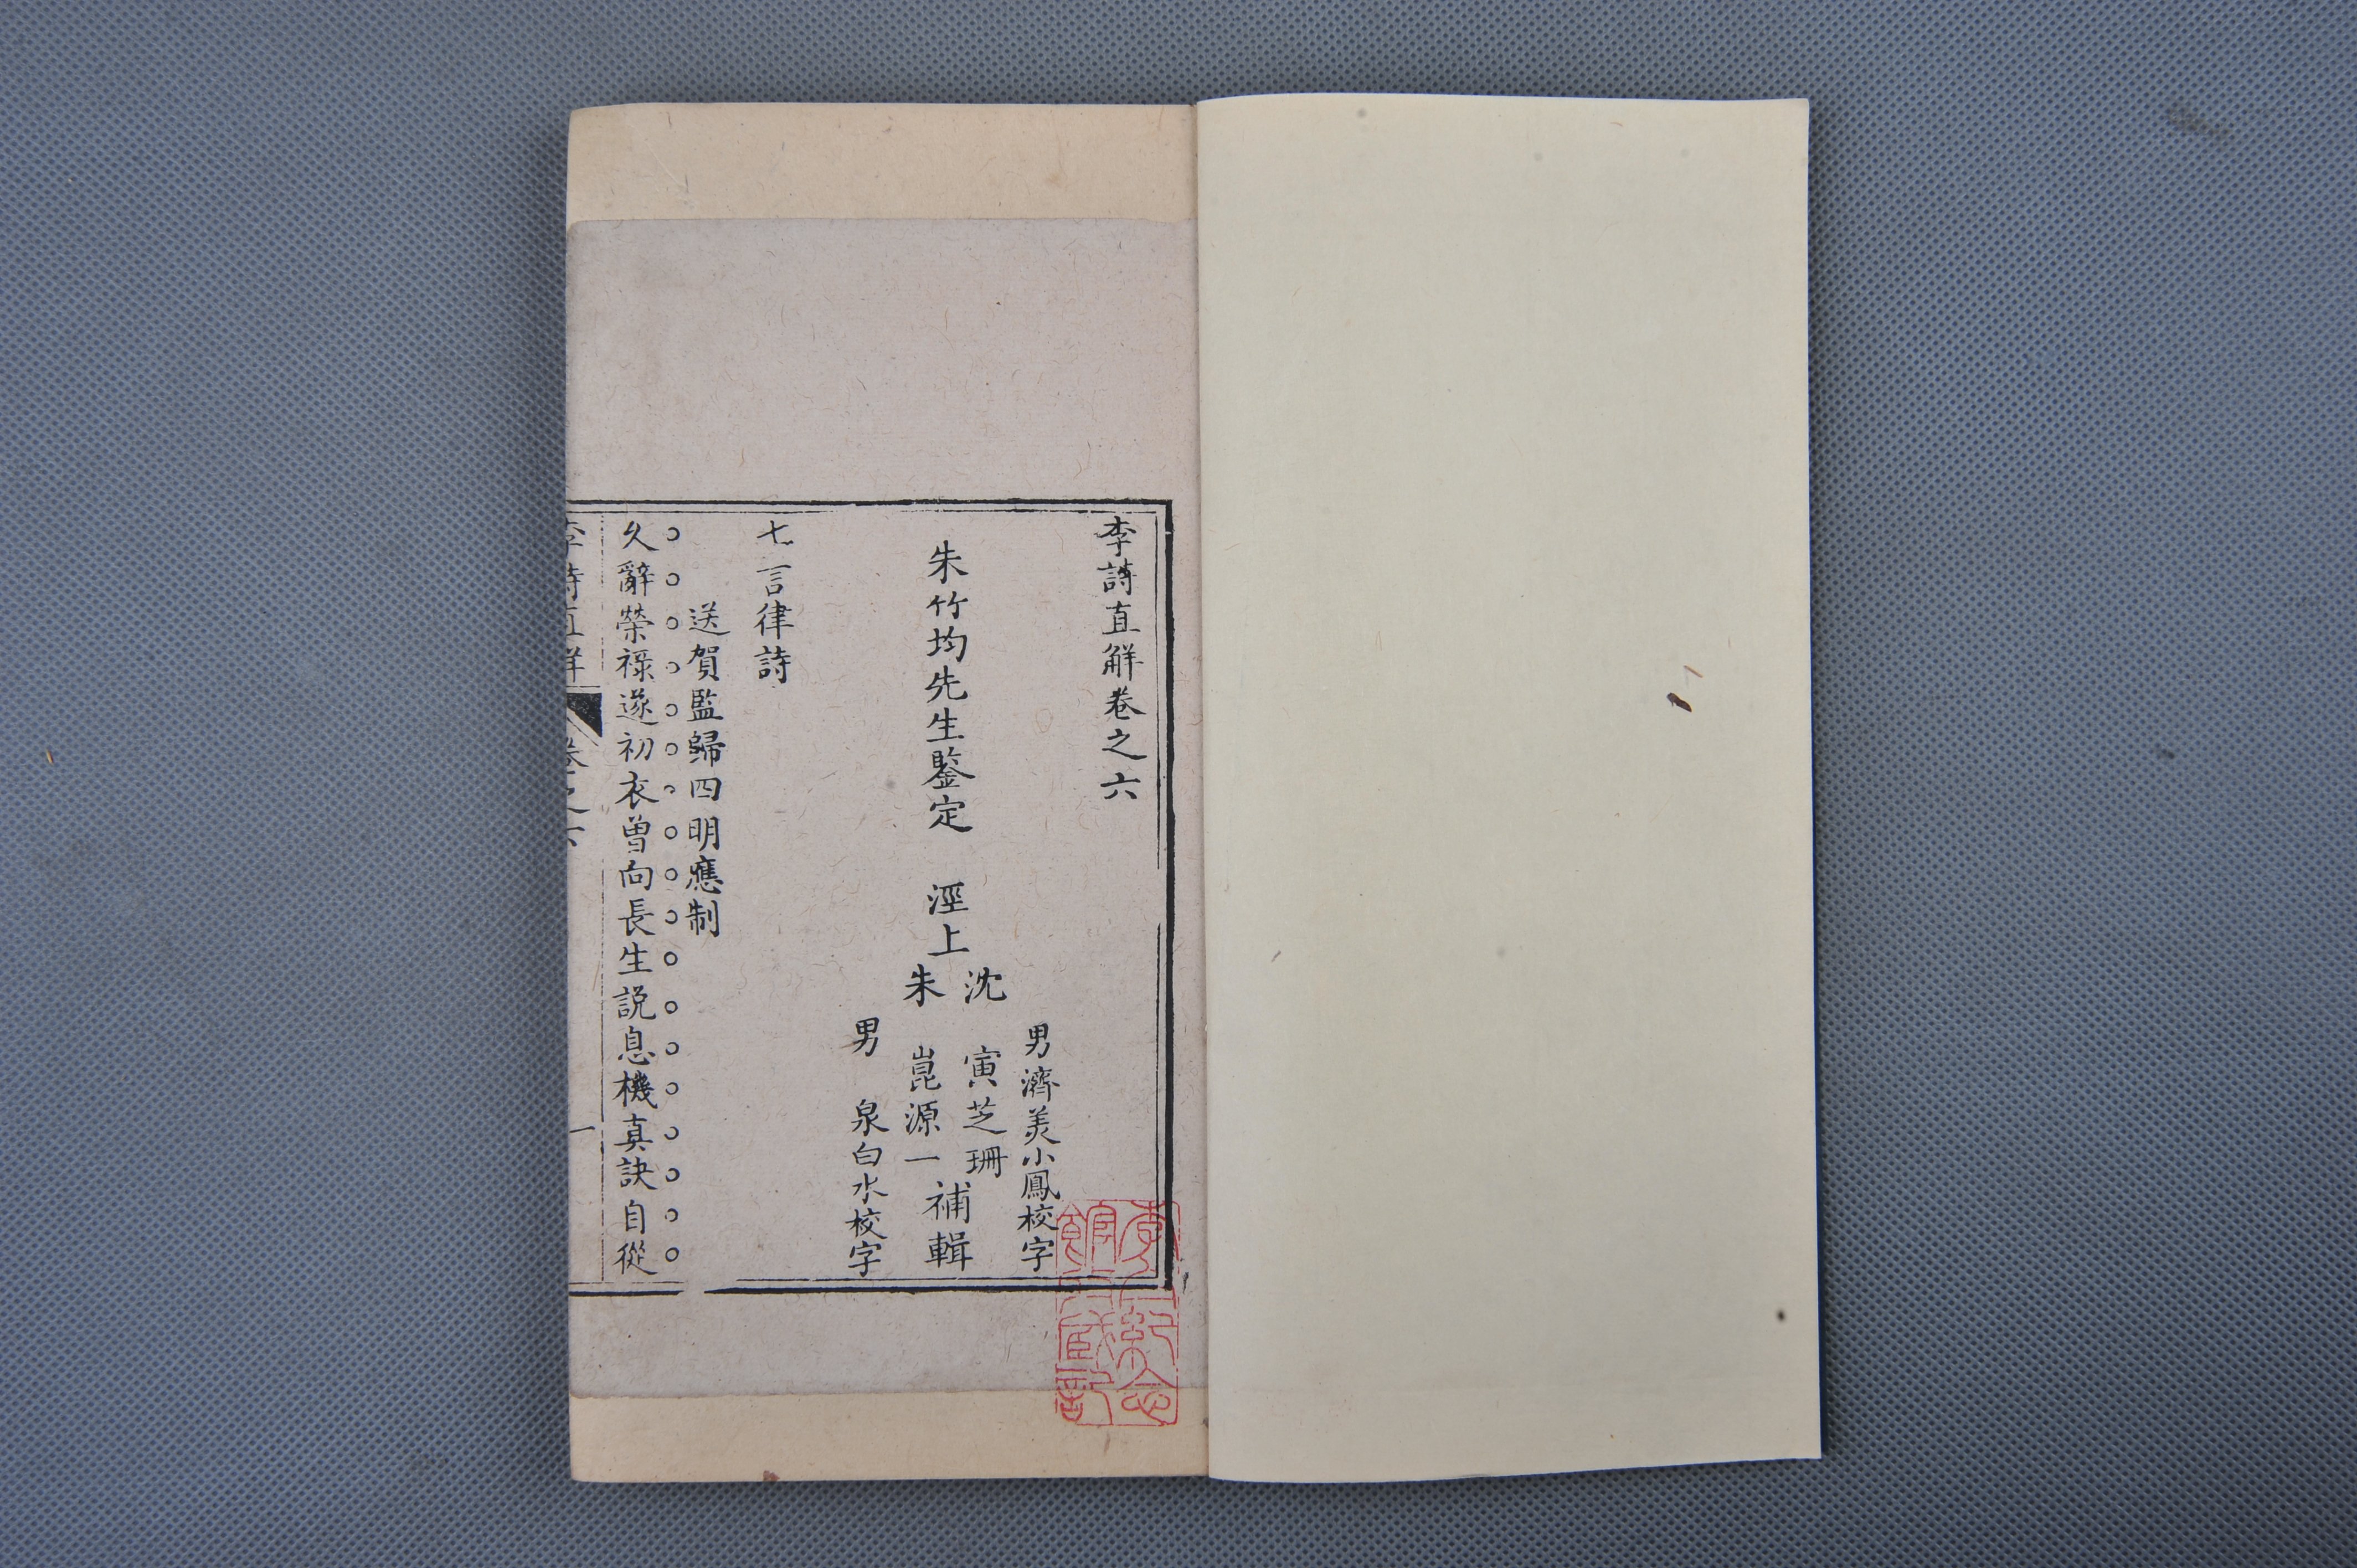 李詩直解卷之六
男濟美小鳳校字
沈寅芝珊
朱竹均先生鑒定 涇上 補輯
朱崑源一
男泉白水校字
七言律詩
送賀監歸四明應制
久辭榮祿遂初衣曾向長生説息機真訣自從
李詩直解 卷之六 一
李白紀念館收藏記